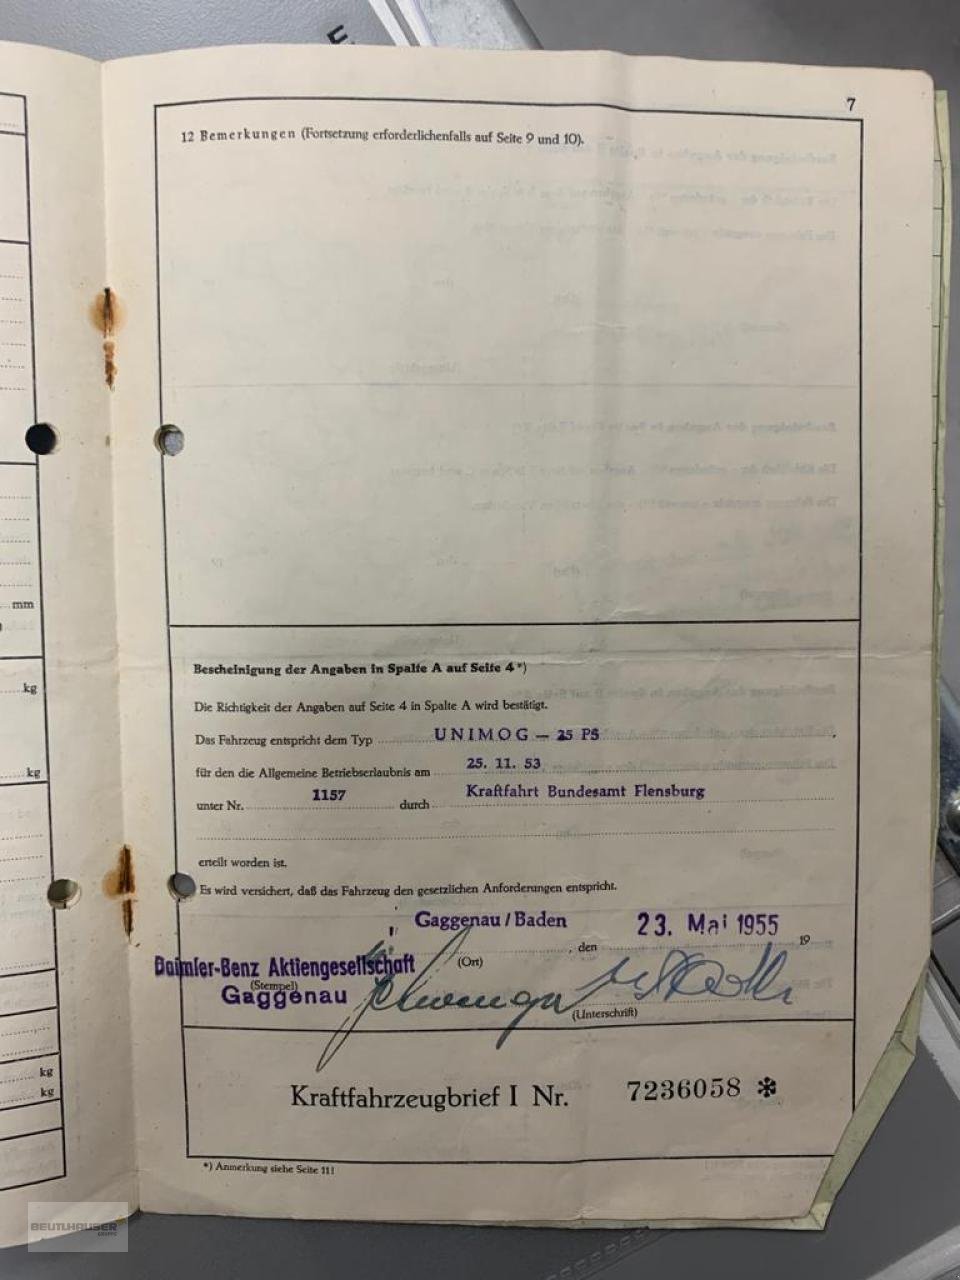 7
12 Bemerkungen (Fortsetzung erforderlichenfalls auf Seite 9 und 10).
mm
kg
kg
kg
kg
Bescheinigung der Angaben in Spalte A auf Seite 4*)
Die Richtigkeit der Angaben auf Seite 4 in Spalte A wird bestätigt.
Das Fahrzeug entspricht dem Typ UNIMOG - 25 PS
für den die Allgemeine Betriebserlaubnis am 25. 11. 53
unter Nr. 1157 durch Kraftfahrt Bundesamt Flensburg
erteilt worden ist.
Es wird versichert, daß das Fahrzeug den gesetzlichen Anforderungen entspricht.
Gaggenau/Baden, den 23. Mai 1955 19
(Ort)
Daimler-Benz Aktiengesellschaft
(Stempel)
Gaggenau
(Unterschrift)
Kraftfahrzeugbrief I Nr. 7236058 ✻
*) Anmerkung siehe Seite 11!
BEUTLHAUSER
GRUPPE